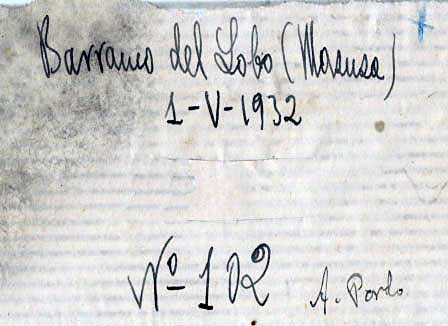 Barranco del Lobo (Masusa)
1-V-1932
Nº-102
A. Pardo